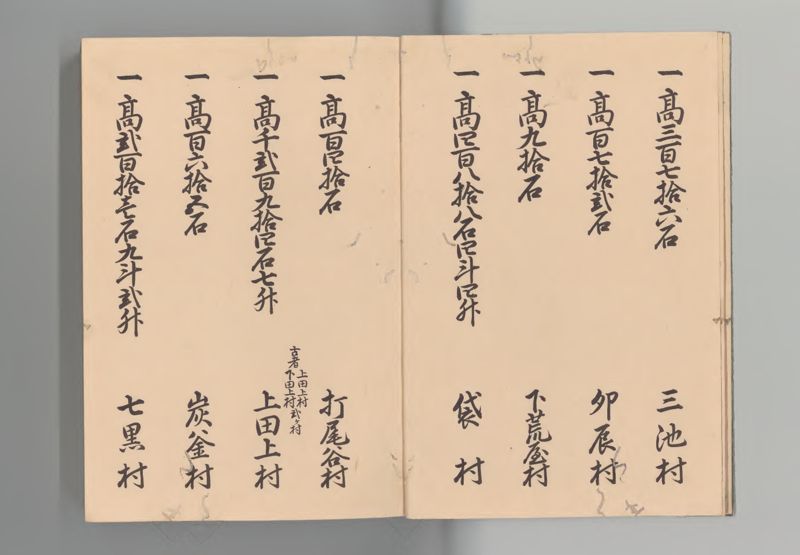 一 高三百七拾六石 三池村
一 高百七拾弐石 卯辰村
一 高九拾石 下荒屋村
一 高四百八拾八石四斗四升 袋村
一 高百四拾石 打尾谷村
上田上村
古者下田上村弐ヶ村
一 高千弐百九拾四石七升 上田上村
一 高百六拾五石 炭釜村
一 高弐百拾壱石九斗弐升 七黒村